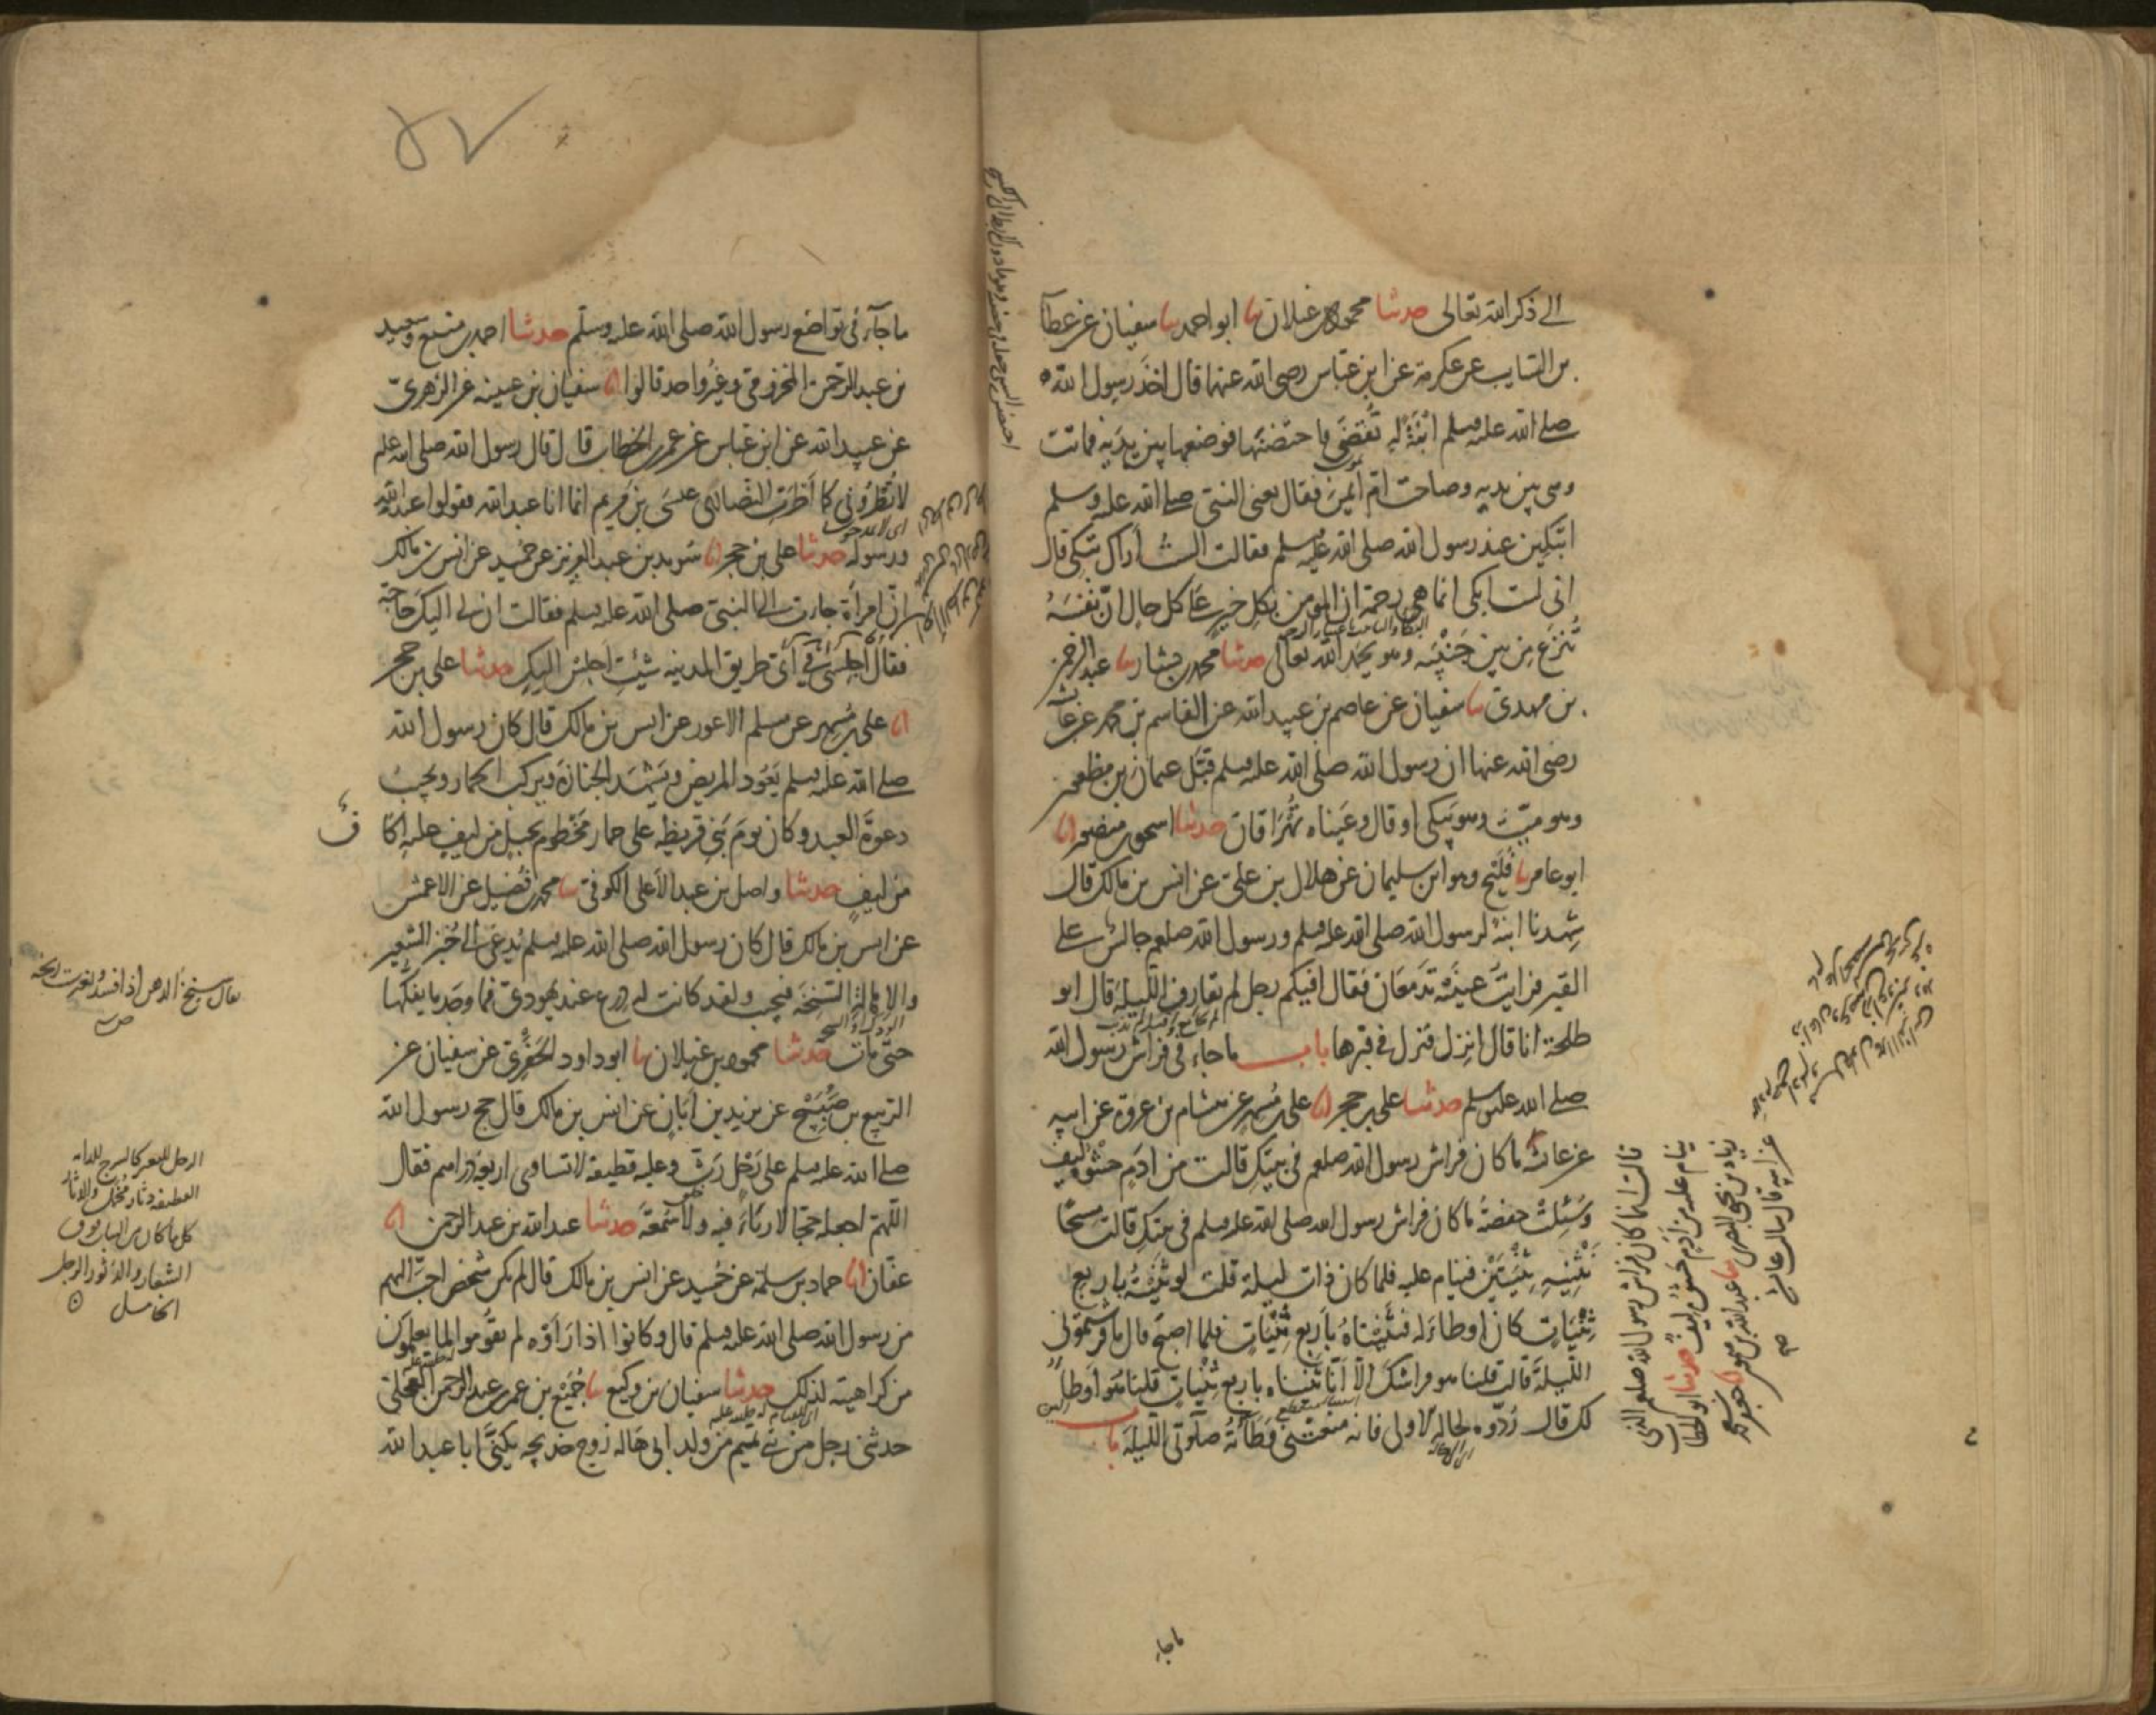 الى ذكر الله تعالى حدثنا محمود بن غيلان نا ابو احمد نا سفيان عن عطا
بن السايب عن عكرمة عن ابن عباس رضى الله عنهما قال اخذ رسول الله
صلى الله عليه وسلم ابنة له تقضي فاحتضنها فوضعها بين يديه فماتت
وهى بين يديه وصاحت ام ايمن فقال يعنى النبى صلى الله عليه وسلم
اتبكين عند رسول الله صلى الله عليه وسلم فقالت الست أراك تبكى قال
انى لست ابكى انما هى رحمة ان المومن بكل خير على كل حال ان نفسه
تنزع من بين جنبيه وهو يحمد الله تعالى حدثنا محمد بن بشار نا عبد الرحمن
بن مهدى نا سفيان عن عاصم بن عبيد الله عن القاسم بن محمد عن عائشة
رضى الله عنها ان رسول الله صلى الله عليه وسلم قبل عثمان بن مظعون
وهو ميت وهو يبكى او قال وعيناه تهراقان حدثنا اسحق بن منصور انا
ابو عامر نا فليح وهو ابن سليمان عن هلال بن على عن انس بن مالك قال
شهدنا ابنة لرسول الله صلى الله عليه وسلم ورسول الله صلعم جالس على
القبر فرايت عينيه تدمعان فقال افيكم رجل لم يقارف الليلة قال ابو
طلحة انا قال انزل فنزل فى قبرها باب ما جاء فى فراش رسول الله
صلى الله عليه وسلم حدثنا على بن حجر انا على بن مسهر عن هشام بن عروة عن ابيه
عن عائشة ما كان فراش رسول الله صلعم فى بيتك قالت من ادم حشوه ليف
وسئلت حفصة ما كان فراش رسول الله صلى الله عليه وسلم فى بيتك قالت مسحا
نثنيه ثنيتين فينام عليه فلما كان ذات ليلة قلت لو ثنيته باربع
ثنيات كان اوطا له فثنيناه باربع ثنيات فلما اصبح قال ما فرشتمونى
الليلة قالت قلنا هو فراشك الا انا ثنيناه باربع ثنيات قلنا هو اوطا
لك قال ردوه لحاله الاولى فانه منعتنى وطاته صلوتى الليلة باب
قالت انما كان فراش رسول الله صلعم الذى
ينام عليه من ادم حشوه ليف حدثنا ابو الخطاب
زياد بن يحيى البصرى نا عبد الله بن ميمون نا جعفر بن محمد
عن ابيه قال سالت عائشة
ماجاء
ما جآء فى تواضع رسول الله صلى الله عليه وسلم حدثنا احمد بن منيع وسعيد
بن عبد الرحمن المخزومى وغير واحد قالوا انا سفيان بن عيينه عن الزهرى
عن عبيد الله عن ابن عباس عن عمر بن الخطاب قال قال رسول الله صلى الله علم
لا تطرونى كما أطرت النصارى عيسى بن مريم انما انا عبد الله فقولوا عبد الله
ورسوله حدثنا على بن حجر انا سويد بن عبد العزيز عن حميد عن انس بن مالك
ان امرأة جاءت الى النبى صلى الله عليه وسلم فقالت ان لى اليك حاجة
فقال اجلسى فى أى طريق المدينه شئت اجلس اليك حدثنا على بن حجر
انا على بن مسهر عن مسلم الاعور عن انس بن مالك قال كان رسول الله
صلى الله عليه وسلم يعود المريض ويشهد الجنازة ويركب الحمار ويجيب
دعوة العبد وكان يوم بنى قريظه على حمار مخطوم بحبل من ليف عليه اكا
ف
من ليف حدثنا واصل بن عبد الأعلى الكوفى نا محمد بن فضيل عن الاعمش
عن انس بن مالك قال كان رسول الله صلى الله عليه وسلم يدعى الى خبز الشعير
والاهالة السنخة فيجيب ولقد كانت له درع عند يهودى فما وجد ما يفكها
حتى مات حدثنا محمود بن غيلان نا ابو داود الحفرى عن سفيان عن
الربيع بن صبيح عن يزيد بن أبان عن انس بن مالك قال حج رسول الله
صلى الله عليه وسلم على رحل رث وعليه قطيفة لا تساوى اربعة دراهم فقال
اللهم اجعله حجا لا رياء فيه ولا سمعة حدثنا عبد الله بن عبد الرحمن انا
عفان انا حماد بن سلمة عن حميد عن انس بن مالك قال لم يكن شخص احب اليهم
من رسول الله صلى الله عليه وسلم قال وكانوا اذا رأوه لم يقوموا لما يعلمون
من كراهيته لذلك حدثنا سفيان بن وكيع نا جميع بن عمر بن عبد الرحمن العجلى
حدثنى رجل من بنى تميم من ولد ابى هالة زوج خديجه يكنى ابا عبد الله
يقال سنخ الدهن اذا فسد وتغيرت ريحه
الرحل للبعير كالسرج للدابه
القطيفة دثار مخمل والدثار
كل ما كان من الثياب فوق
الشعار